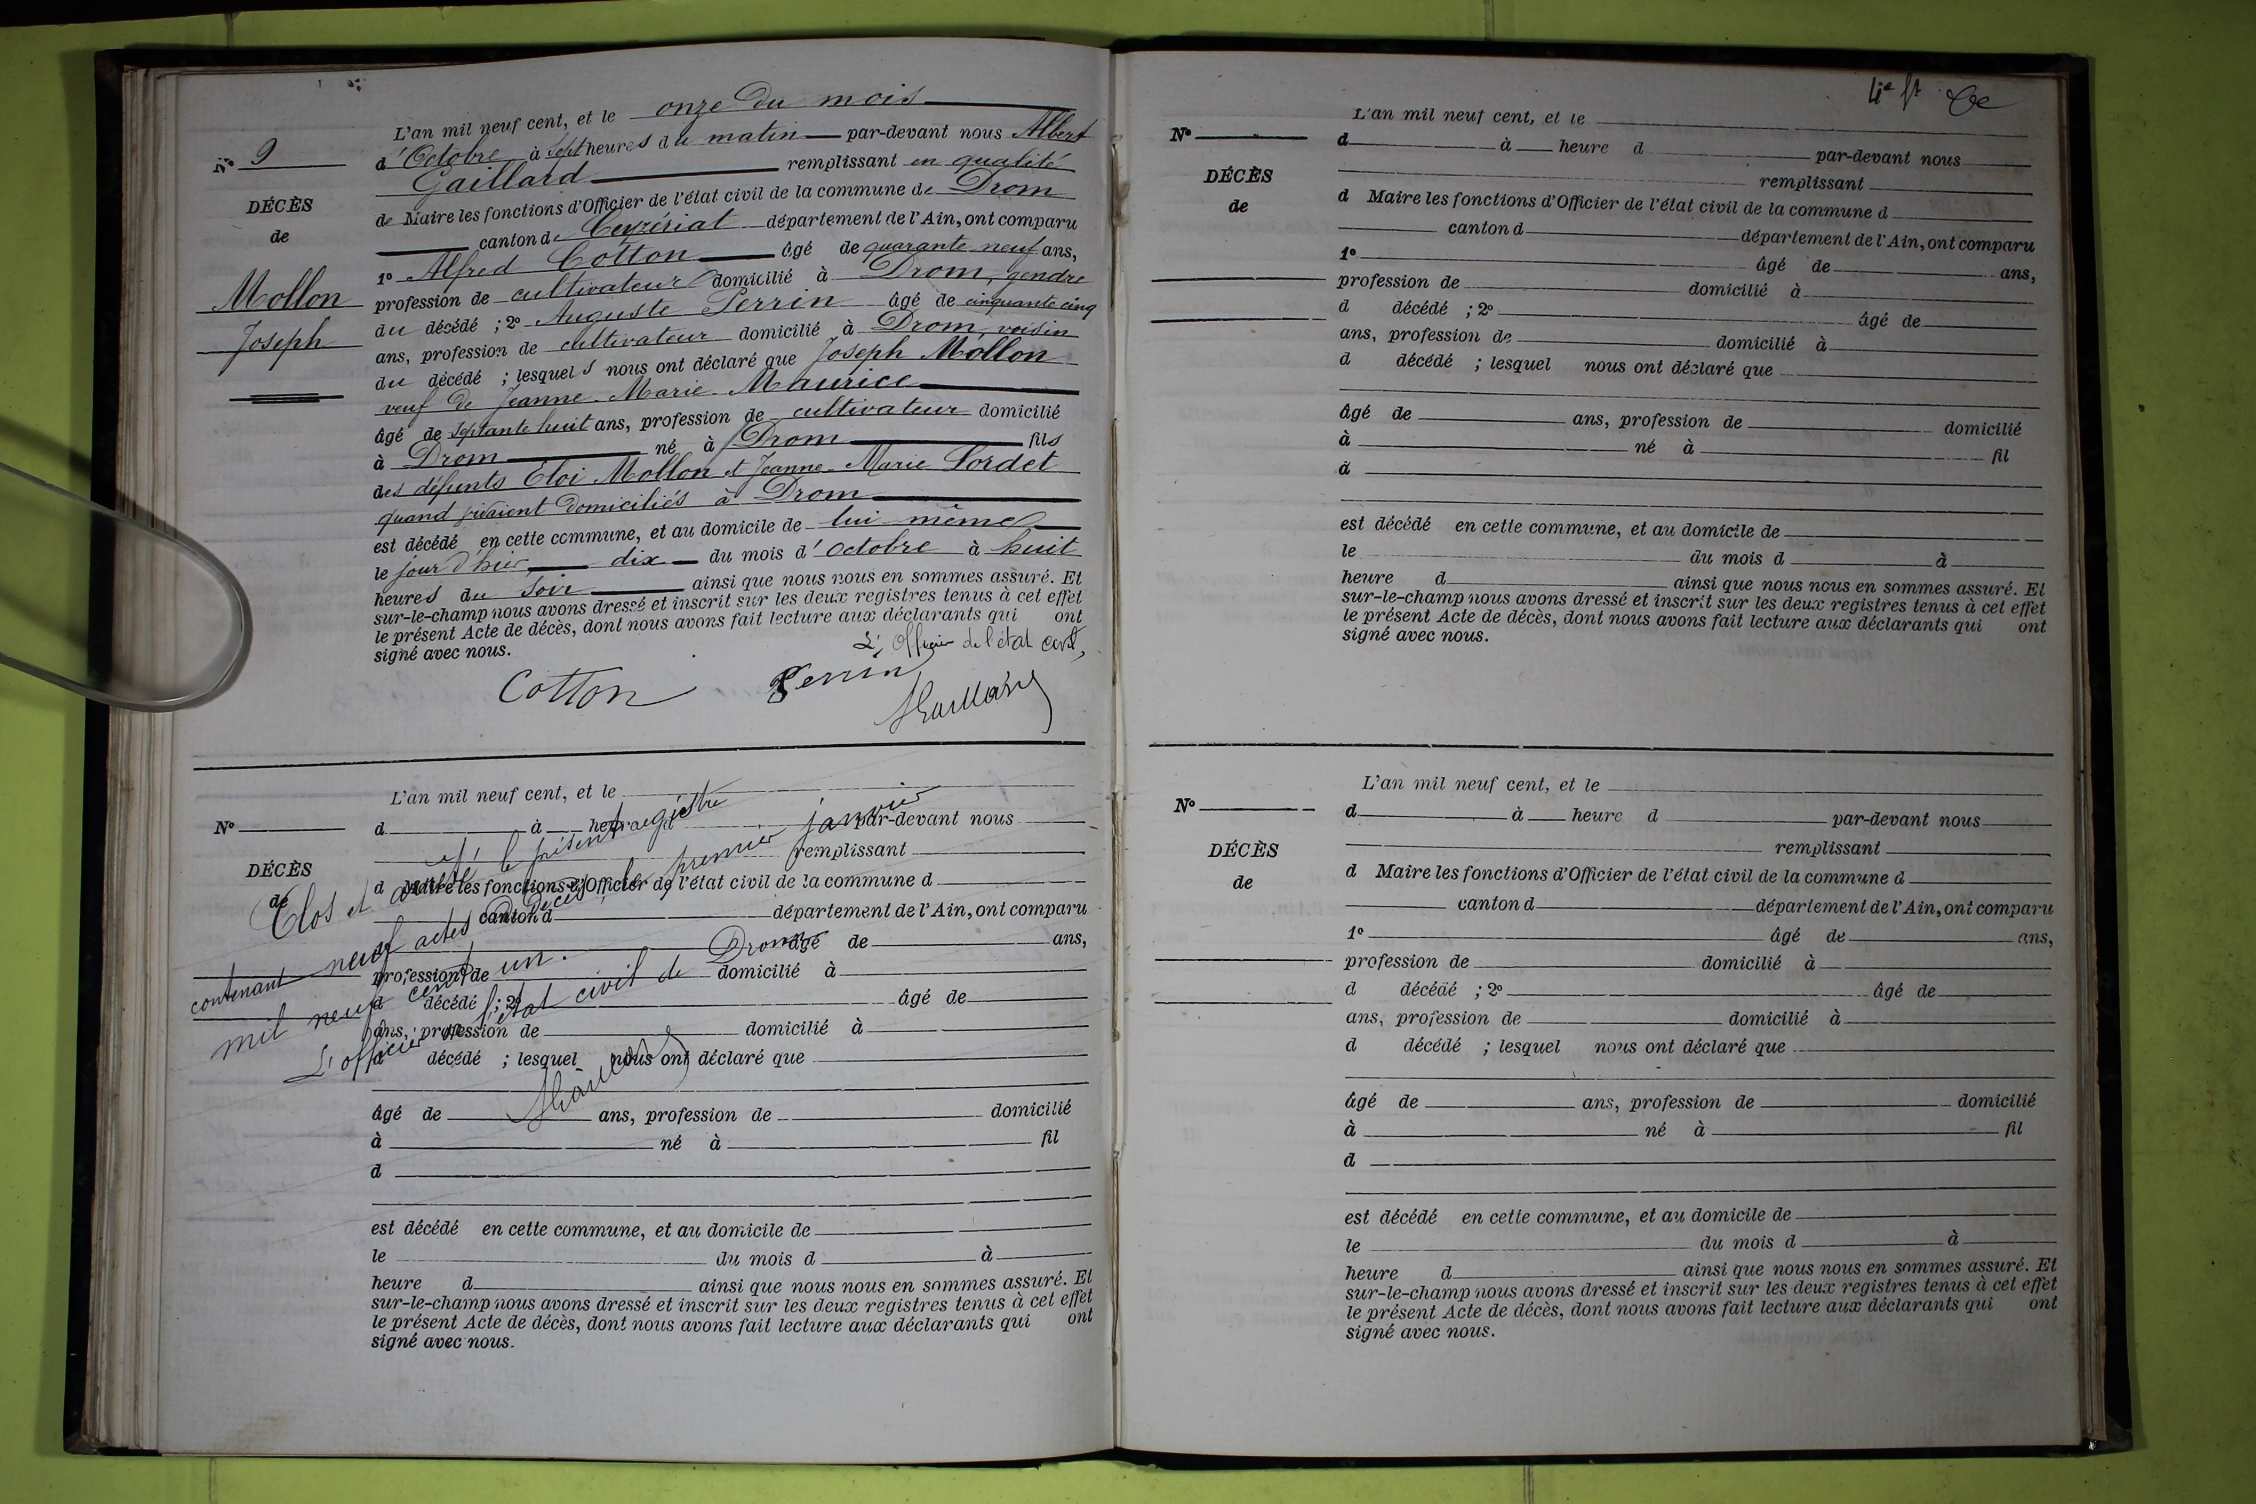 L'an mil neuf cent, et le onze du mois
d'Octobre à sept heures du matin par-devant nous Albert
Gaillard remplissant en qualité
de Maire les fonctions d'Officier de l'état civil de la commune de Drom
canton de Ceyzériat département de l'Ain, ont comparu
1º Alfred Cotton âgé de quarante neuf ans,
profession de cultivateur domicilié à Drom, gendre
du décédé ; 2º Auguste Perrin âgé de cinquante cinq
ans, profession de cultivateur domicilié à Drom, voisin
du décédé ; lesquels nous ont déclaré que Joseph Mollon
veuf de Jeanne-Marie Maurice
âgé de septante huit ans, profession de cultivateur domicilié
à Drom né à Drom fils
des défunts Eloi Mollon et Jeanne-Marie Sordet
quand vivaient domiciliés à Drom
est décédé en cette commune, et au domicile de lui même
le jour d'hier dix du mois d'octobre à huit
heures du soir ainsi que nous nous en sommes assuré. Et
sur-le-champ nous avons dressé et inscrit sur les deux registres tenus à cet effet
le présent Acte de décès, dont nous avons fait lecture aux déclarants qui ont
signé avec nous.
L'Officier de l'état civil,
Cotton Perrin AGaillard
Nº 9
DÉCÈS
de
Mollon
Joseph
L'an mil neuf cent, et le
d à heure d par-devant nous
remplissant
d Maire les fonctions d'Officier de l'état civil de la commune d
canton d département de l'Ain, ont comparu
âgé de ans,
profession de domicilié à
d décédé ; 2º âgé de
ans, profession de domicilié à
d décédé ; lesquel nous ont déclaré que
âgé de ans, profession de domicilié
à né à fil
d
est décédé en cette commune, et au domicile de
le du mois d à
heure d ainsi que nous nous en sommes assuré. Et
sur-le-champ nous avons dressé et inscrit sur les deux registres tenus à cet effet
le présent Acte de décès, dont nous avons fait lecture aux déclarants qui ont
signé avec nous.
Nº
DÉCÈS
de
Clos et arrêté le présent registre
contenant neuf actes de décès, le premier janvier
mil neuf cent un.
L'officier de l'état civil de Drom
AGaillard
4e ft
L'an mil neuf cent, et le
d à heure d par-devant nous
remplissant
d Maire les fonctions d'Officier de l'état civil de la commune d
canton d département de l'Ain, ont comparu
1º âgé de ans,
profession de domicilié à
d décédé ; 2º âgé de
ans, profession de domicilié à
d décédé ; lesquel nous ont déclaré que
âgé de ans, profession de domicilié
à né à fil
d
est décédé en cette commune, et au domicile de
le du mois d à
heure d ainsi que nous nous en sommes assuré. Et
sur-le-champ nous avons dressé et inscrit sur les deux registres tenus à cet effet
le présent Acte de décès, dont nous avons fait lecture aux déclarants qui ont
signé avec nous.
Nº
DÉCÈS
de
L'an mil neuf cent, et le
d à heure d par-devant nous
remplissant
d Maire les fonctions d'Officier de l'état civil de la commune d
canton d département de l'Ain, ont comparu
1º âgé de ans,
profession de domicilié à
d décédé ; 2º âgé de
ans, profession de domicilié à
d décédé ; lesquel nous ont déclaré que
âgé de ans, profession de domicilié
à né à fil
d
est décédé en cette commune, et au domicile de
le du mois d à
heure d ainsi que nous nous en sommes assuré. Et
sur-le-champ nous avons dressé et inscrit sur les deux registres tenus à cet effet
le présent Acte de décès, dont nous avons fait lecture aux déclarants qui ont
signé avec nous.
Nº
DÉCÈS
de